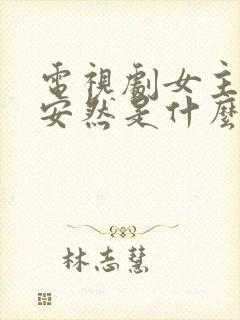 電視劇女主
安然是什麼
林志慧